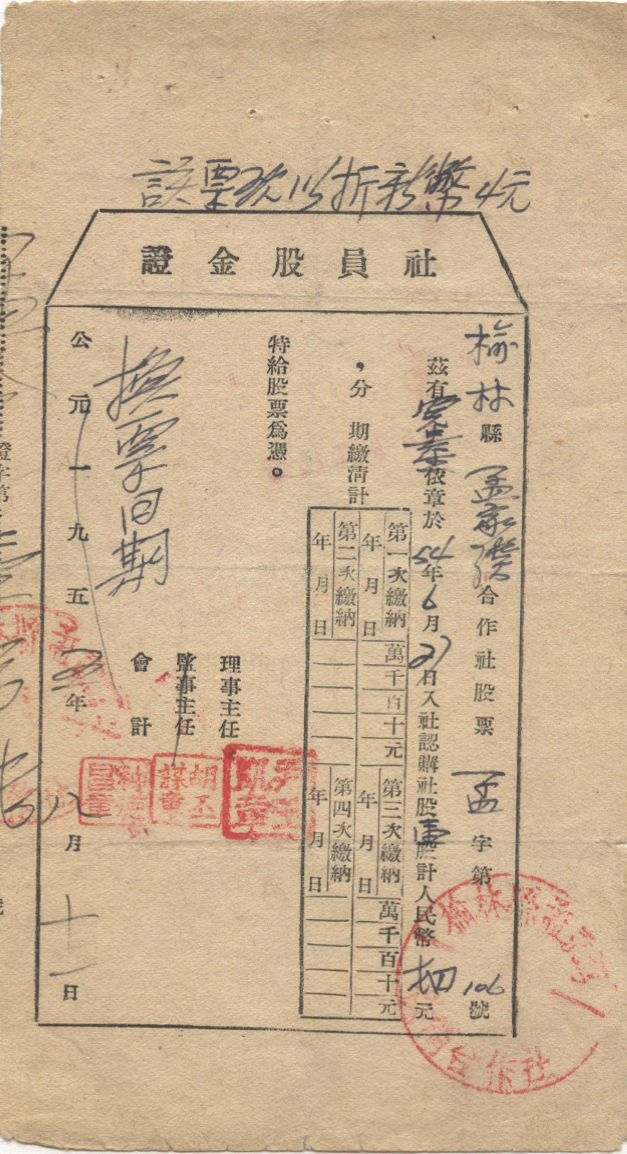 該票款以折新幣4元
社員股金證
榆林縣孟家灣合作社股票 孟字第106號
茲有 依章於54年6月27日入社認購社股 股計人民幣 元
，分 期繳清計
第一次繳納 萬千百十元
年 月 日
第二次繳納
年 月 日
第三次繳納 萬千百十元
年 月 日
第四次繳納
年 月 日
特給股票為憑。
理事主任
監事主任
會計
換票日期
公元一九五五年八月十一日
證字第
號
榆林縣孟家灣 合作社